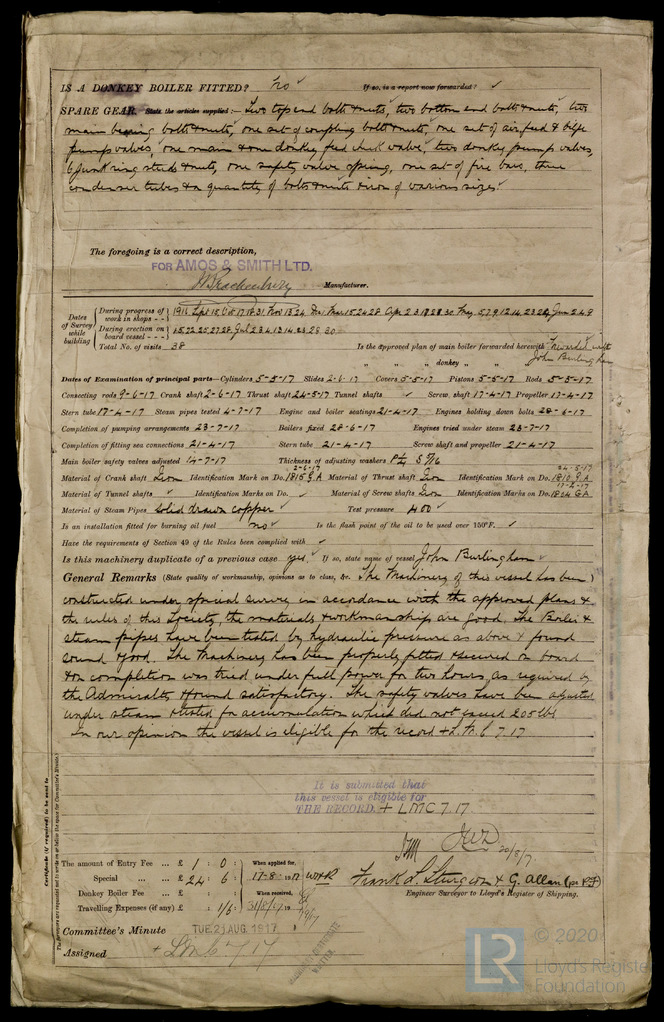 IS A DONKEY BOILER FITTED? no ✓ If so, is a report now forwarded? ✓
SPARE GEAR. State the articles supplied:— Two top end bolts & nuts, two bottom end bolts & nuts, two
main bearing bolts & nuts, one set of coupling bolts & nuts, one set of air feed & bilge
pumps valves, one main & one donkey feed check valve, two donkey pump valves,
6 junk ring studs & nuts, one safety valve spring, one set of fire bars, three
condenser tubes & a quantity of bolts & nuts & iron of various sizes.
The foregoing is a correct description,
FOR AMOS & SMITH LTD.
Manufacturer.
Dates of Survey while building
During progress of work in shops - - 1916 Sept 15 Oct 17 18 31 Nov 13 24 Dec Mar 15 24 28 Apr 2 3 17 28 30 May 5 7 9 12 14 23 24 Jun 2 4 9
During erection on board vessel - - - 15 22 25 27 28 Jul 2 3 4 13 14 23 28 30
Total No. of visits 38 Is the approved plan of main boiler forwarded herewith
John Burlingham
" " " donkey " "
Dates of Examination of principal parts—Cylinders 5-5-17 Slides 2-6-17 Covers 5-5-17 Pistons 5-5-17 Rods 5-5-17
Connecting rods 9-6-17 Crank shaft 2-6-17 Thrust shaft 24-5-17 Tunnel shafts ✓ Screw shaft 17-4-17 Propeller 17-4-17
Stern tube 17-4-17 Steam pipes tested 4-7-17 Engine and boiler seatings 21-4-17 Engines holding down bolts 28-6-17
Completion of pumping arrangements 23-7-17 Boilers fixed 28-6-17 Engines tried under steam 23-7-17
Completion of fitting sea connections 21-4-17 Stern tube 21-4-17 Screw shaft and propeller 21-4-17
Main boiler safety valves adjusted 14-7-17 Thickness of adjusting washers P 1/4 S 5/16
2-6-17 24-5-17
Material of Crank shaft Iron Identification Mark on Do. 1815 G.A Material of Thrust shaft Iron Identification Mark on Do. 1810 G.A
Material of Tunnel shafts ✓ Identification Marks on Do. ✓ Material of Screw shafts Iron Identification Marks on Do. 1824 GA
Material of Steam Pipes solid drawn copper ✓ Test pressure 400 ✓
Is an installation fitted for burning oil fuel no ✓ Is the flash point of the oil to be used over 150°F. ✓
Have the requirements of Section 49 of the Rules been complied with ✓
Is this machinery duplicate of a previous case yes ✓ If so, state name of vessel John Burlingham ✓
General Remarks (State quality of workmanship, opinions as to class, &c. The Machinery of this vessel has been )
constructed under special survey in accordance with the approved plans &
the rules of this Society, the materials & workmanship are good. The Boiler &
steam pipes have been tested by hydraulic pressure as above & found
sound & good. The Machinery has been properly fitted & secured on board
& on completion was tried under full power for two hours, as required by
the Admiralty & found satisfactory. The safety valves have been adjusted
under steam & tested for accumulation which did not exceed 205 lbs
In our opinion the vessel is eligible for the record + L.M.C 7.17
It is submitted that
this vessel is eligible for
THE RECORD. + LMC 7.17
20/8/17
The amount of Entry Fee ... £ 1 : 0 : When applied for,
Special ... ... £ 24 : 6 : 17-8-1917
Donkey Boiler Fee ... £ : : When received,
Travelling Expenses (if any) £ : 1/6 : 31/8/17
Frank L. Sturgeon & G. Allan
Engineer Surveyor to Lloyd's Register of Shipping.
Committee's Minute TUE. 21 AUG. 1917
Assigned + LMC 7.17
Certificate (if required) to be sent to
© 2020
Lloyd's Register
Foundation
LR